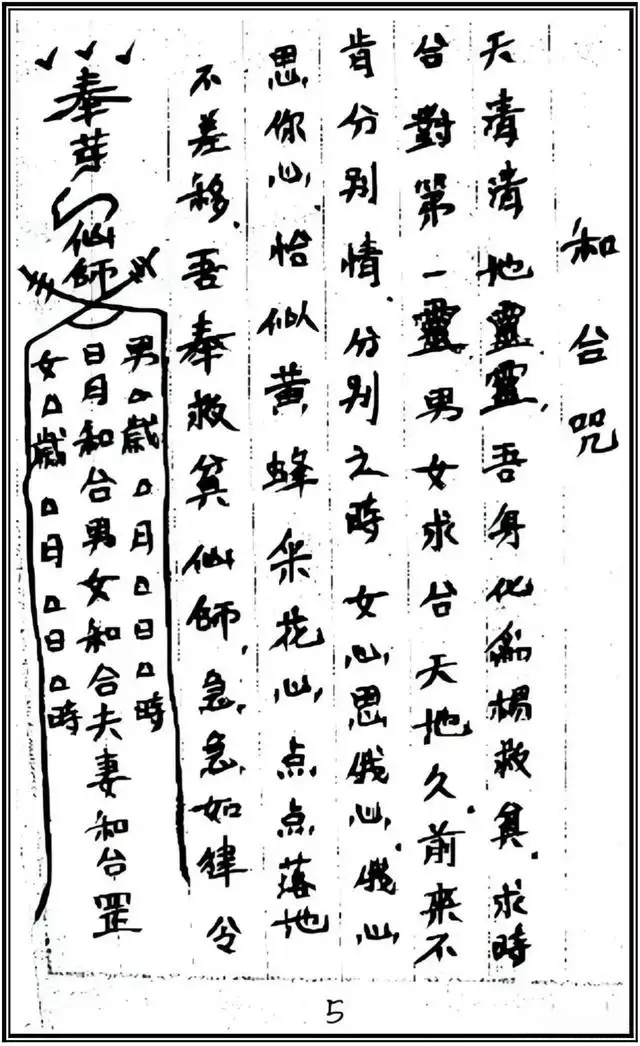 和合咒
天清清地靈靈,吾身化為楊救貧.求時
合對第一靈.男女求合天地久.前來不
肯分别情.分别之時女心思俄心.俄心
思你心.恰似黄蜂采花心.点点落地
不差移.吾奉救貧仙師.急急如律令
奉
仙師
男△歲△月△日△時
日月和合男女和合夫妻和合罡
女△歲△月△日△時
5